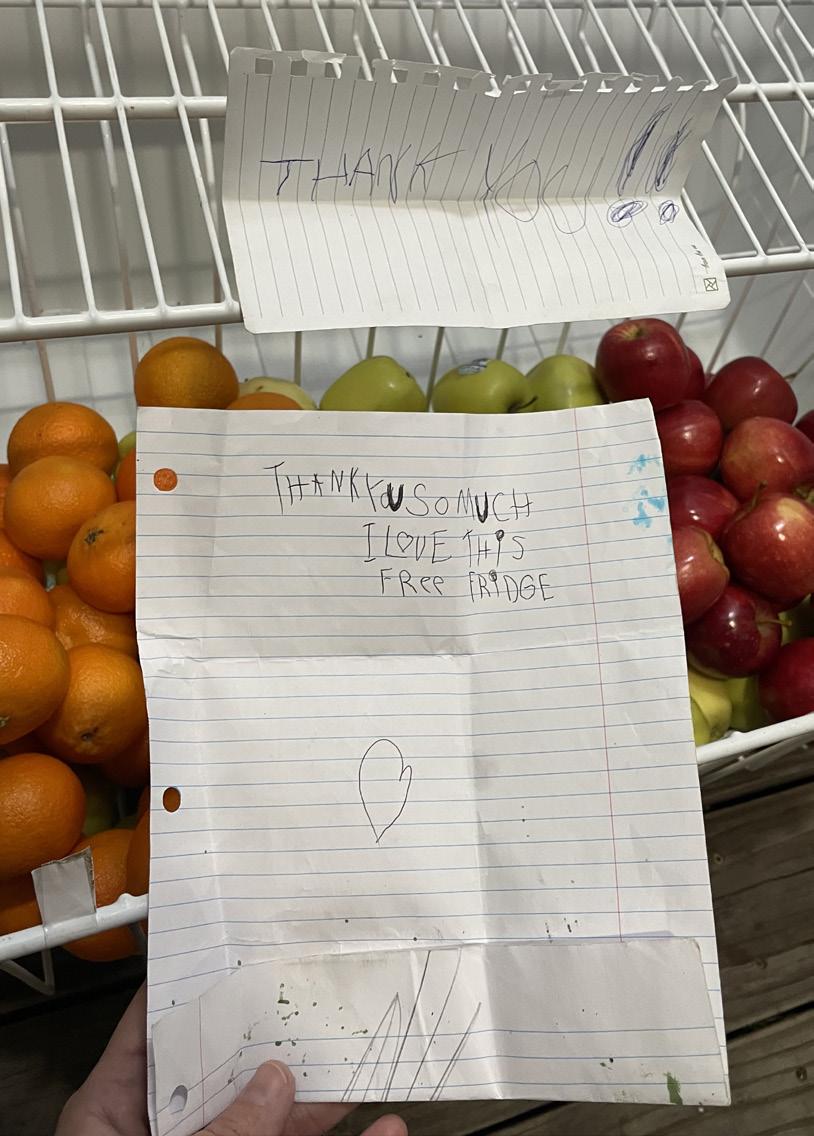 THANK YOU!!
THANK YOU SO MUCH
I LOVE THIS
FREE FRIDGE